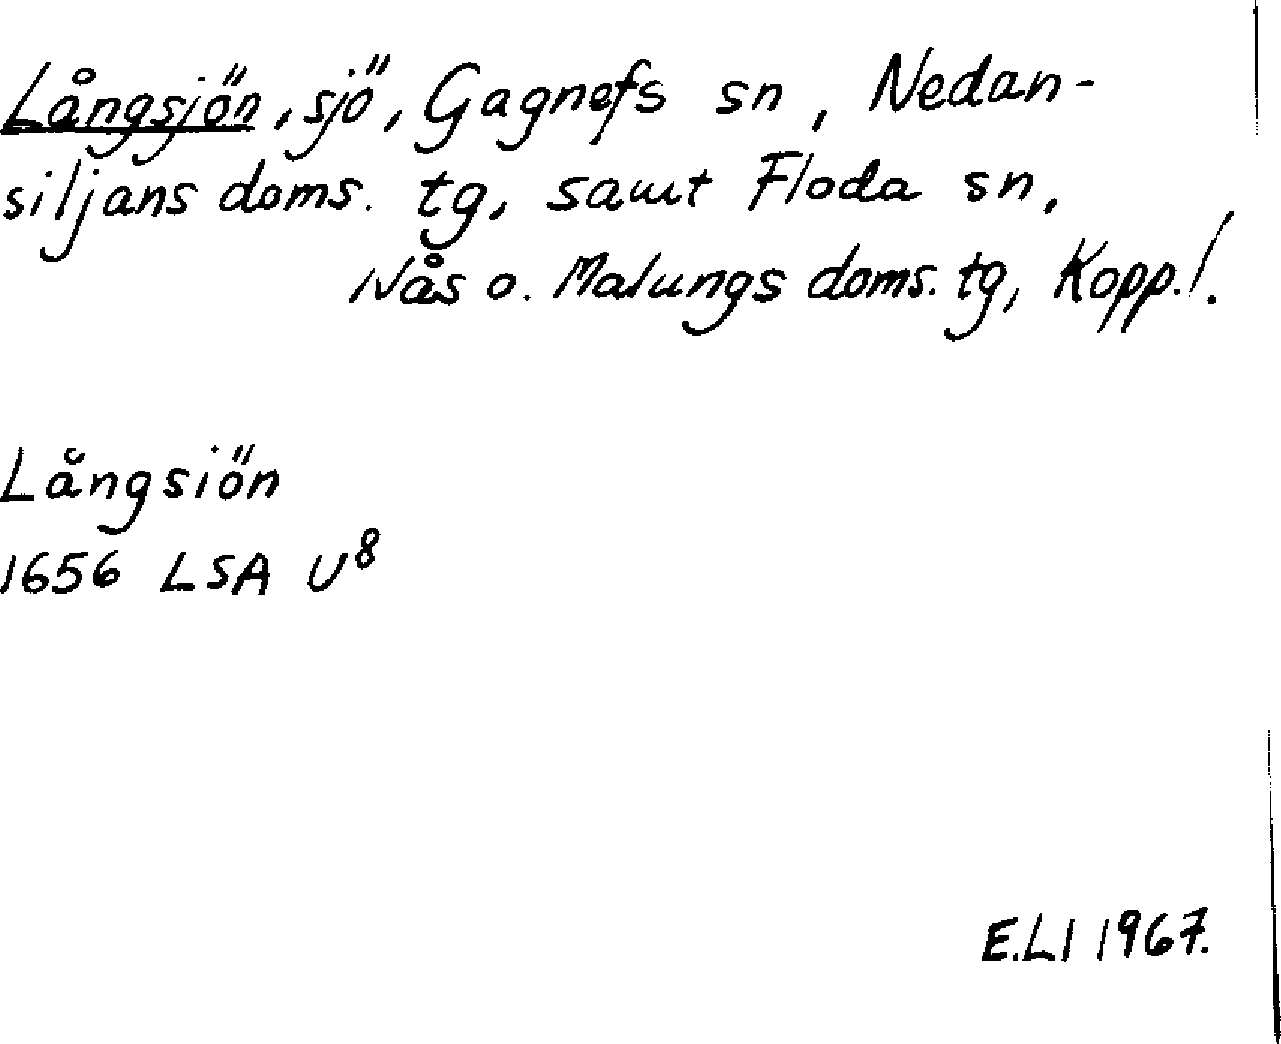 Långsjön, sjö, Gagnefs sn, Nedan-
siljans doms. tg, samt Floda sn,
Nås o. Malungs doms. tg, Kopp. l.
Långsiön
1656 LSA U⁸
E.LI 1967.